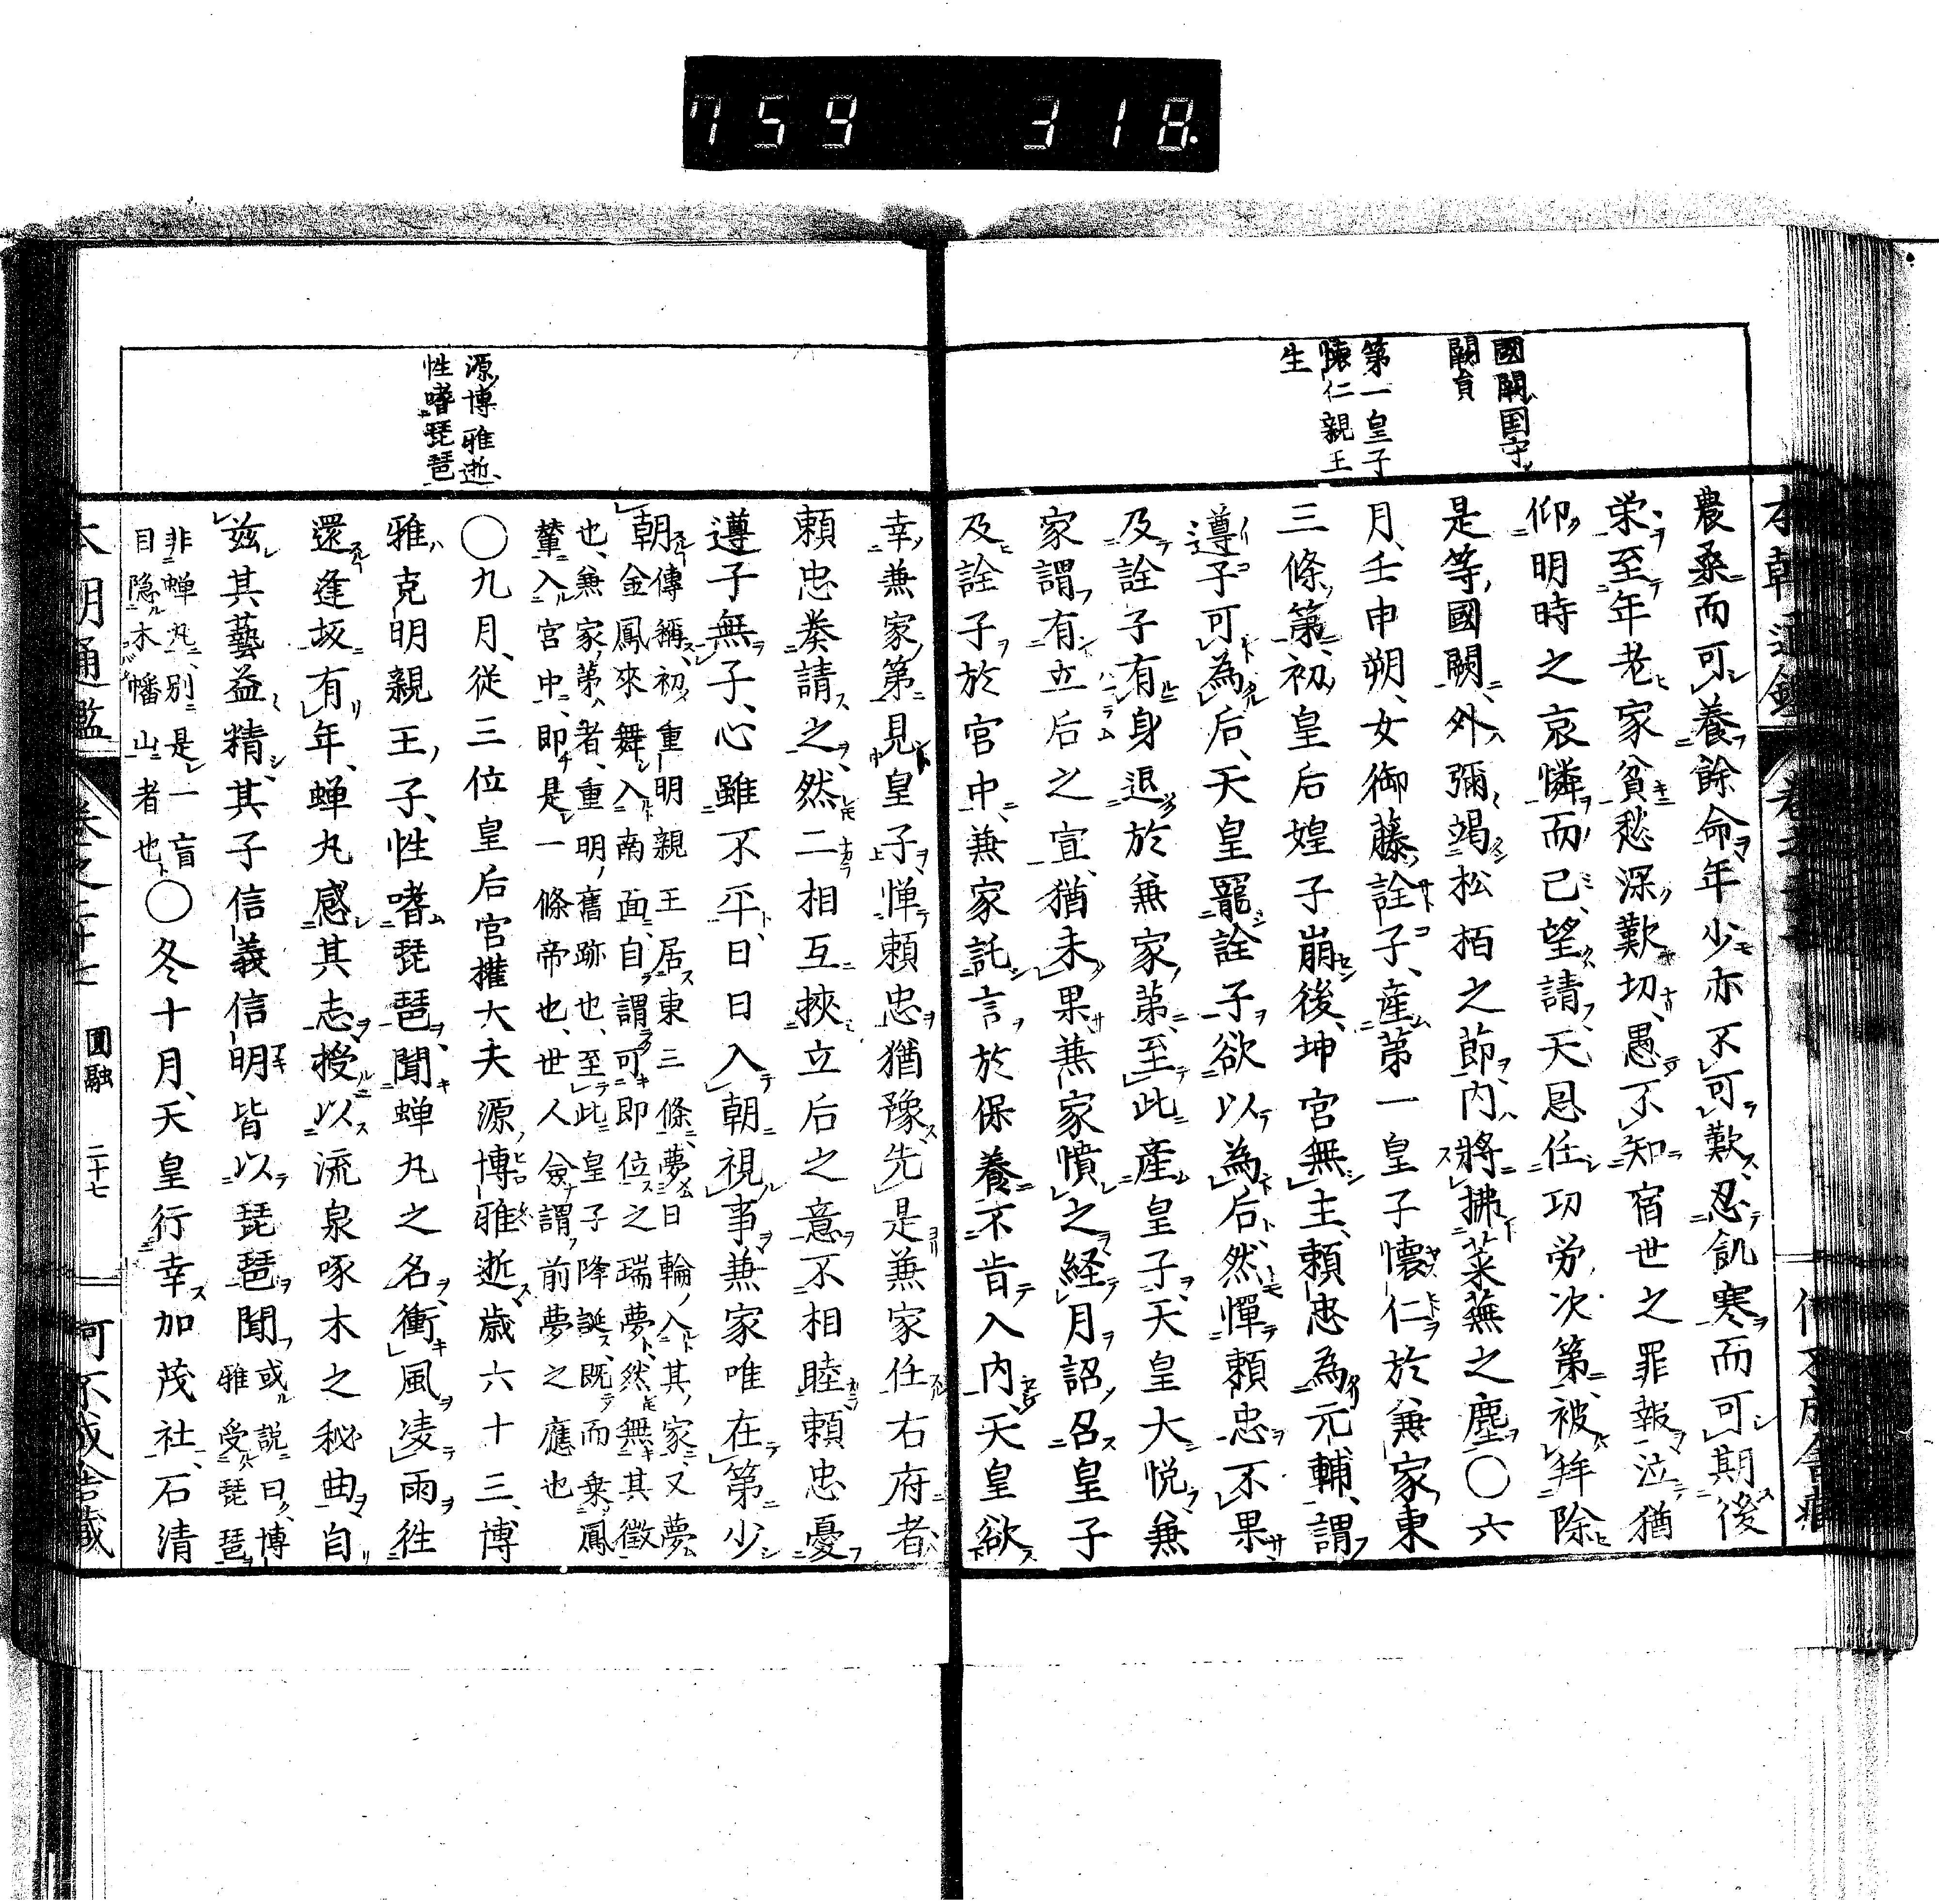 759 318
國闕国守
闕員
第一皇子
懐仁親王
生
農桑而可養餘命年少亦不可歎忍飢寒而可期後
栄至年老家貧愁深歎切愚不知宿世之罪報泣猶
仰明時之哀憐而已望請天恩任功労次第被拜除
是等國闕外彌竭松栢之節内將拂菜蕪之塵〇六
月壬申朔女御藤詮子産第一皇子懐仁於兼家東
三條第初皇后媓子崩後坤宮無主頼忠為元輔謂
遵子可為后天皇寵詮子欲以為后然憚頼忠不果
及詮子有身退於兼家第至此産皇子天皇大悦兼
家謂有立后之宣猶未果兼家憤之経月詔召皇子
及詮子於宮中兼家託言於保養不肯入内天皇欲
源博雅逝
性嗜琵琶
幸兼家第見皇子憚頼忠猶豫先是兼家任右府者
頼忠奏請之然二相互挾立后之意不相睦頼忠憂
遵子無子心雖不平日日入朝視事兼家唯在第少
朝傳稱初重明親王居東三條夢日輪入其家又夢
金鳳來舞入南面自謂可即位之瑞夢然無其徴
也兼家第者重明舊跡也至此皇子降誕既而乗鳳
輦入宮中即是一條帝也世人僉謂前夢之應也
〇九月從三位皇后宮權大夫源博雅逝歳六十三博
雅克明親王子性嗜琵琶聞蝉丸之名衝風凌雨往
還逢坂有年蝉丸感其志授以流泉啄木之秘曲自
茲其藝益精其子信義信明皆以琵琶聞或説曰博
雅受琵琶
非蝉丸別是一盲
目隠木幡山者也〇冬十月天皇行幸加茂社石清
本朝通鑑 卷之二十七 圓融 二十七